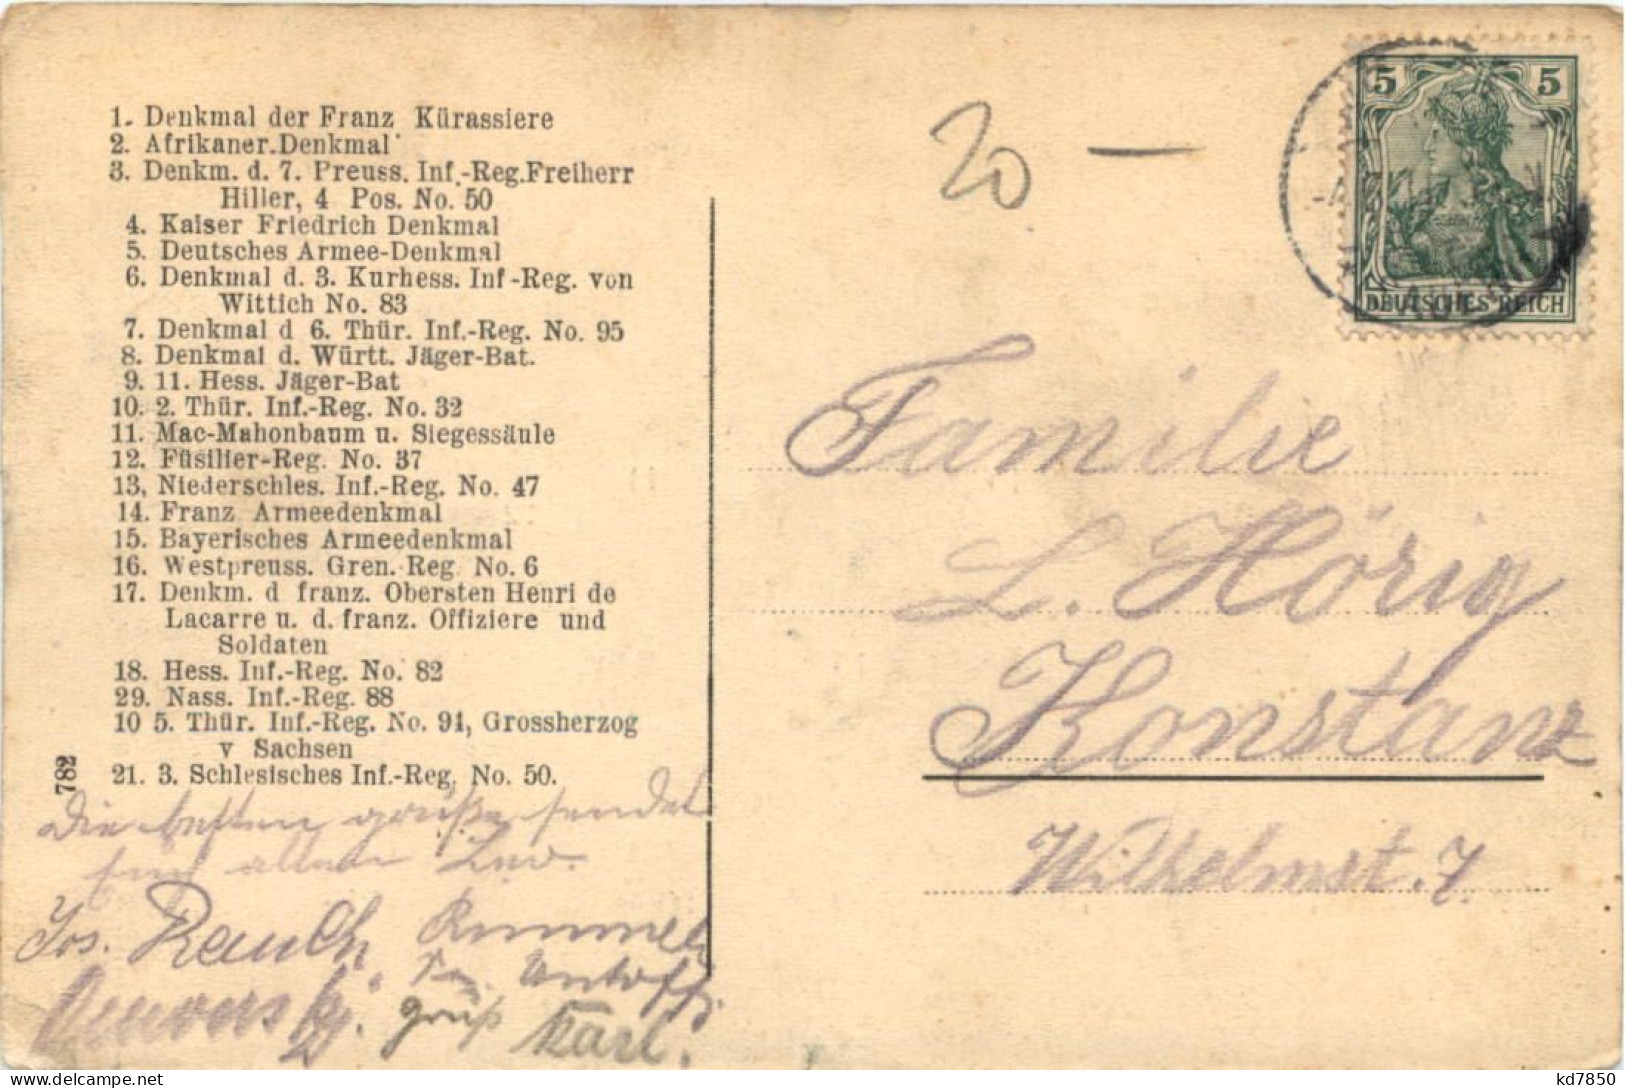 1. Denkmal der Franz Kürassiere
2. Afrikaner.Denkmal
3. Denkm. d. 7. Preuss. Inf.-Reg.Freiherr
Hiller, 4 Pos. No. 50
4. Kaiser Friedrich Denkmal
5. Deutsches Armee-Denkmal
6. Denkmal d. 3. Kurhess. Inf-Reg. von
Wittich No. 83
7. Denkmal d 6. Thür. Inf.-Reg. No. 95
8. Denkmal d. Württ. Jäger-Bat.
9. 11. Hess. Jäger-Bat
10. 2. Thür. Inf.-Reg. No. 32
11. Mac-Mahonbaum u. Siegessäule
12. Füsilier-Reg. No. 37
13, Niederschles. Inf.-Reg. No. 47
14. Franz Armeedenkmal
15. Bayerisches Armeedenkmal
16. Westpreuss. Gren.-Reg No. 6
17. Denkm. d franz. Obersten Henri de
Lacarre u. d. franz. Offiziere und
Soldaten
18. Hess. Inf.-Reg. No. 82
29. Nass. Inf.-Reg. 88
10 5. Thür. Inf.-Reg. No. 91, Grossherzog
v Sachsen
21. 3. Schlesisches Inf.-Reg. No. 50.
782
Die besten grüße sendet
allen
Jos. Rauch
gruß Karl.
20 —
5 5
DEUTSCHES REICH
Familie
L. Hörig
Konstanz
Wilhelmst. 7.
kd7850